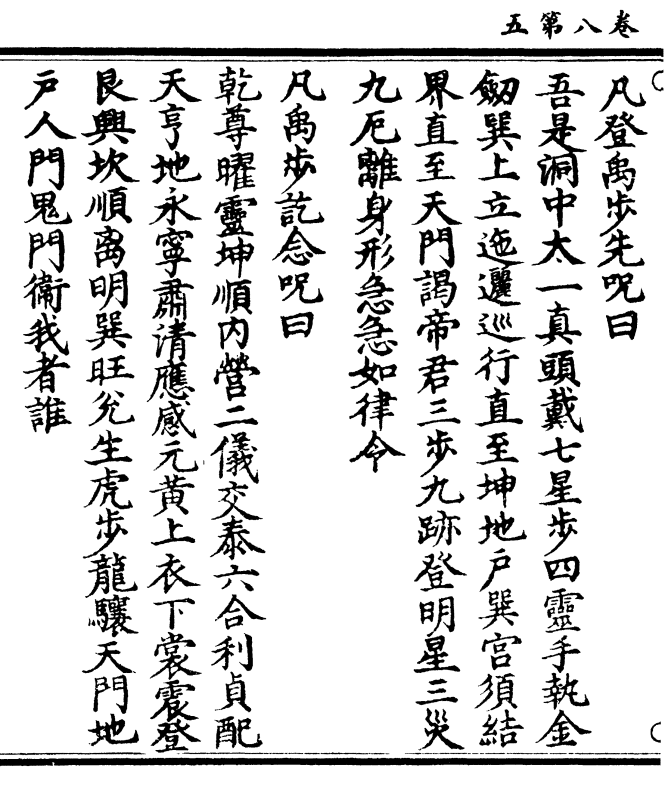 卷八第五
凡登禹步先呪曰
吾是洞中太一真頭戴七星步四靈手執金
劒巽上立迤邐巡行直至坤地戶巽宮須結
界直至天門謁帝君三步九跡登明星三災
九厄離身形急急如律令
凡禹步訖念呪曰
乾尊曜靈坤順内營二儀交泰六合利貞配
天亨地永寧肅清應感元黃上衣下裳震登
艮興坎順离明巽旺兌生虎步龍驤天門地
戶人門鬼門衛我者誰